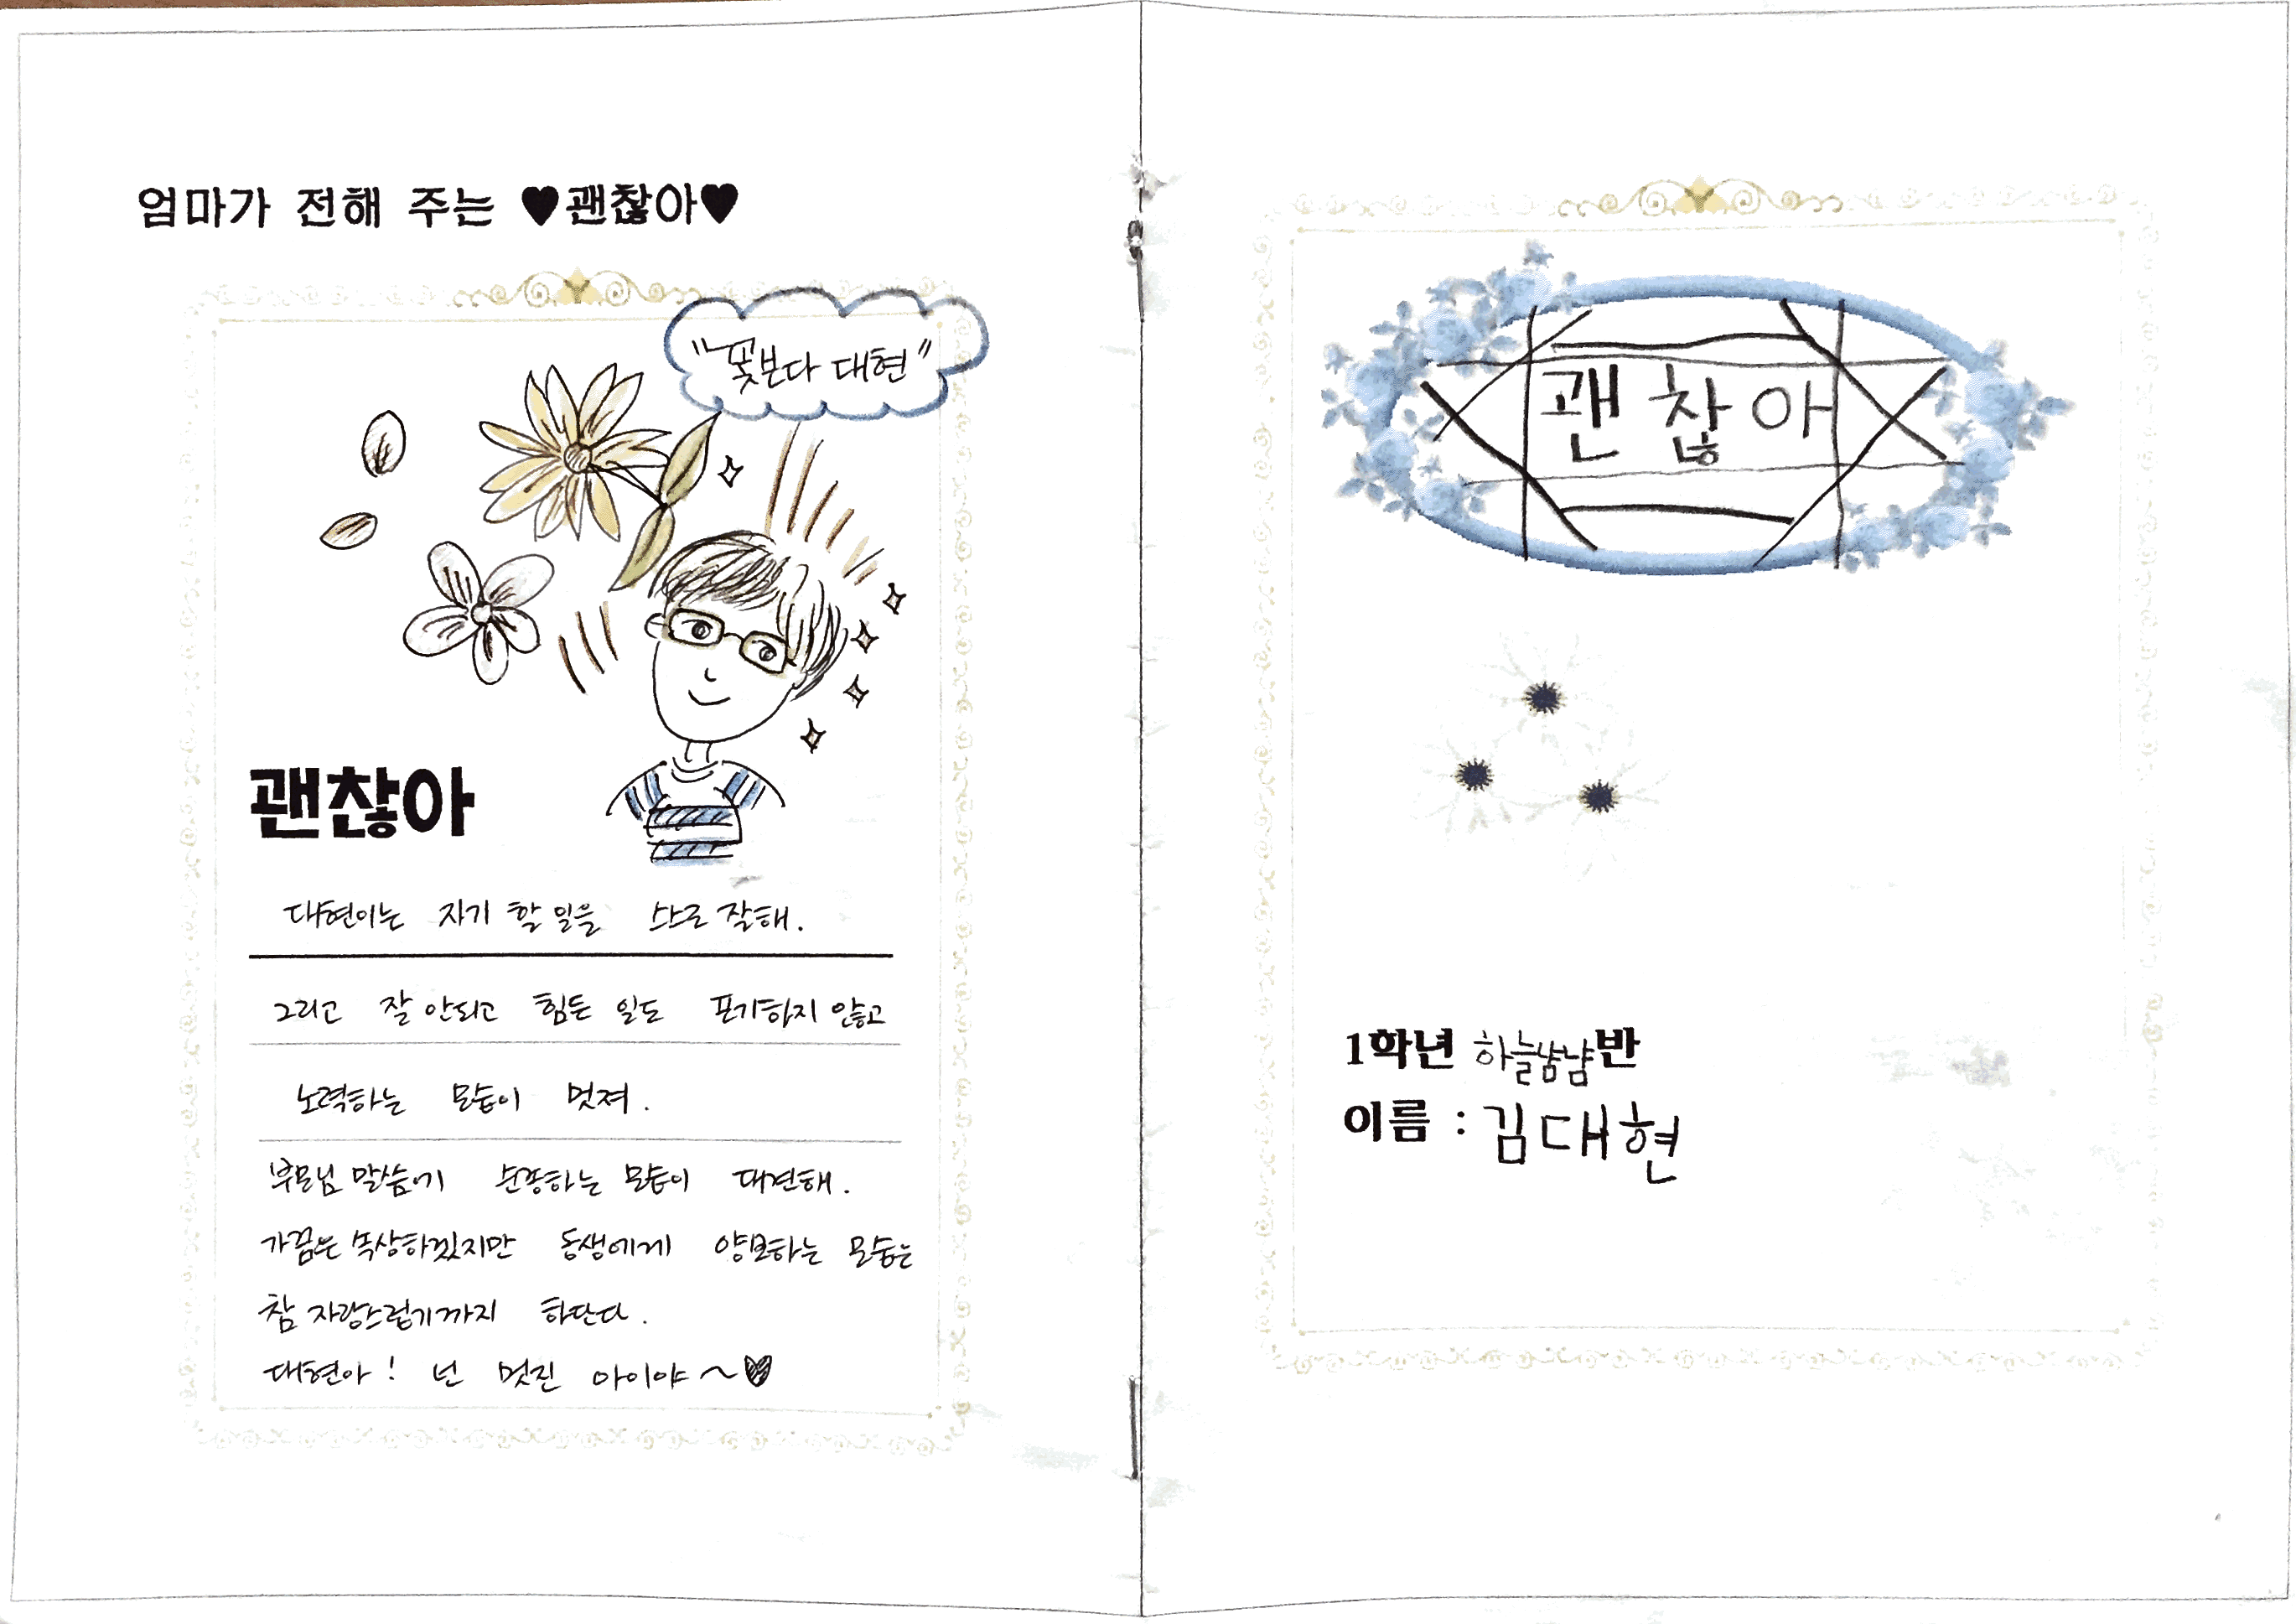 엄마가 전해 주는 ♥괜찮아♥
"꽃보다 대현"
괜찮아
대현이는 자기 할 일을 스스로 잘해.
그리고 잘 안되고 힘든 일도 포기하지 않고
노력하는 모습이 멋져.
부모님 말씀에 순종하는 모습이 대견해.
가끔은 속상하겠지만 동생에게 양보하는 모습은
참 자랑스럽기까지 하단다.
대현아! 넌 멋진 아이야~♥
괜찮아
1학년 하늘냠냠반
이름 : 김대현